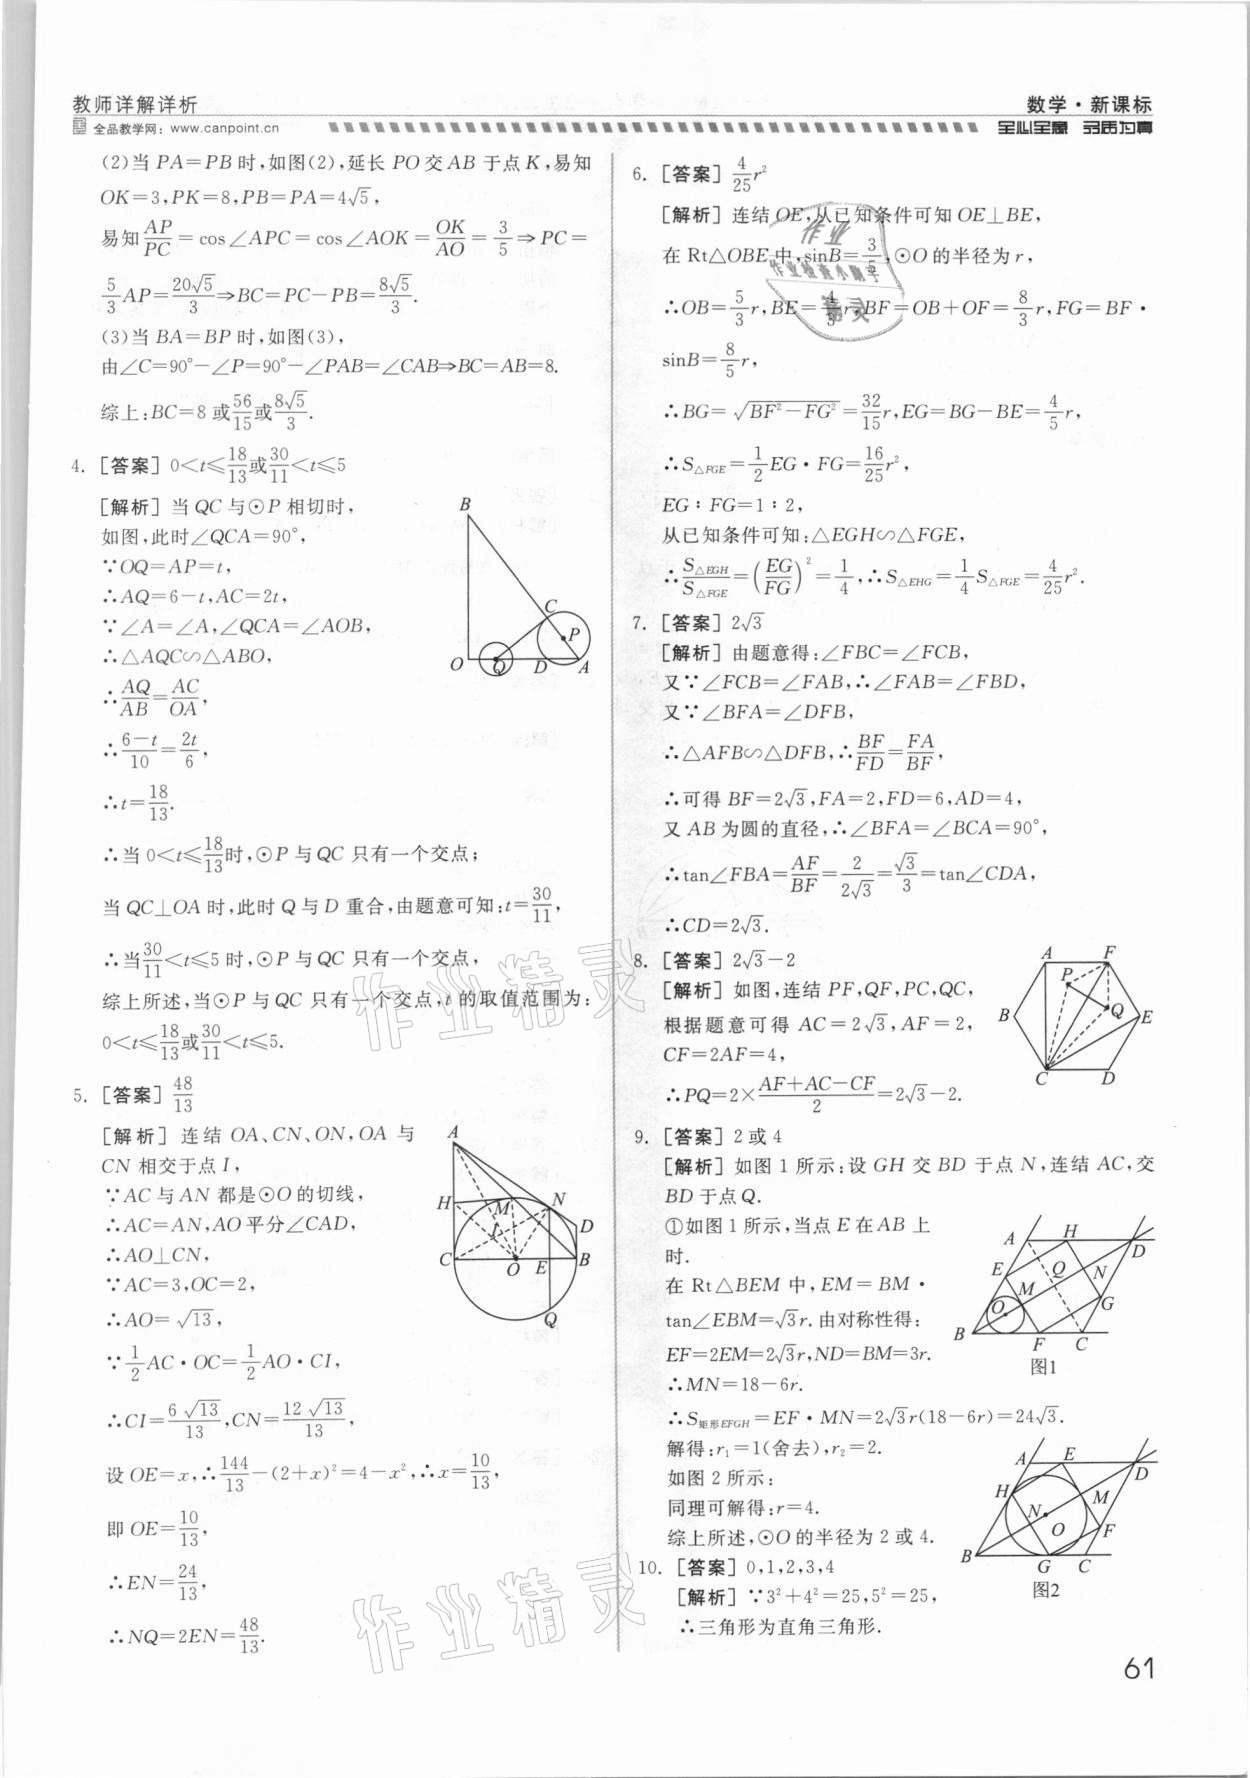 教师详解详析
数学·新课标
全品教学网：www.canpoint.cn
全心全意 品质为真
(2)当 PA=PB 时,如图(2),延长 PO 交 AB 于点 K,易知
OK=3,PK=8,PB=PA=4√5,
易知AP/PC=cos∠APC=cos∠AOK=OK/AO=3/5⇒PC=
5/3AP=20√5/3⇒BC=PC-PB=8√5/3.
(3)当 BA=BP 时,如图(3),
由∠C=90°-∠P=90°-∠PAB=∠CAB⇒BC=AB=8.
综上:BC=8 或56/15或8√5/3.
4. [答案] 0<t≤18/13或30/11<t≤5
[解析] 当 QC 与⊙P 相切时,
如图,此时∠QCA=90°,
∵OQ=AP=t,
∴AQ=6-t,AC=2t,
∵∠A=∠A,∠QCA=∠AOB,
∴△AQC∽△ABO,
∴AQ/AB=AC/OA,
∴6-t/10=2t/6,
∴t=18/13.
∴当 0<t≤18/13时,⊙P 与 QC 只有一个交点;
当 QC⊥OA 时,此时 Q 与 D 重合,由题意可知:t=30/11,
∴当30/11<t≤5 时,⊙P 与 QC 只有一个交点,
综上所述,当⊙P 与 QC 只有一个交点,t 的取值范围为:
0<t≤18/13或30/11<t≤5.
B
C
P
O
Q
D
A
5. [答案] 48/13
[解析] 连结 OA、CN、ON,OA 与
CN 相交于点 I,
∵AC 与 AN 都是⊙O 的切线,
∴AC=AN,AO 平分∠CAD,
∴AO⊥CN,
∵AC=3,OC=2,
∴AO=√13,
∵1/2AC·OC=1/2AO·CI,
∴CI=6√13/13,CN=12√13/13,
设 OE=x,∴144/13-(2+x)²=4-x²,∴x=10/13,
即 OE=10/13,
∴EN=24/13,
∴NQ=2EN=48/13.
A
H
M
N
I
D
C
O
E
B
Q
6. [答案] 4/25r²
[解析] 连结 OE,从已知条件可知 OE⊥BE,
在 Rt△OBE 中,sinB=3/5,⊙O 的半径为 r,
∴OB=5/3r,BE=4/3r,BF=OB+OF=8/3r,FG=BF·
sinB=8/5r,
∴BG=√BF²-FG²=32/15r,EG=BG-BE=4/5r,
∴S△FGE=1/2EG·FG=16/25r²,
EG∶FG=1∶2,
从已知条件可知:△EGH∽△FGE,
∴S△EGH/S△FGE=(EG/FG)²=1/4,∴S△EHG=1/4S△FGE=4/25r².
7. [答案] 2√3
[解析] 由题意得:∠FBC=∠FCB,
又∵∠FCB=∠FAB,∴∠FAB=∠FBD,
又∵∠BFA=∠DFB,
∴△AFB∽△DFB,∴BF/FD=FA/BF,
∴可得 BF=2√3,FA=2,FD=6,AD=4,
又 AB 为圆的直径,∴∠BFA=∠BCA=90°,
∴tan∠FBA=AF/BF=2/2√3=√3/3=tan∠CDA,
∴CD=2√3.
8. [答案] 2√3-2
[解析] 如图,连结 PF,QF,PC,QC,
根据题意可得 AC=2√3,AF=2,
CF=2AF=4,
∴PQ=2×AF+AC-CF/2=2√3-2.
A
F
P
B
Q
E
C
D
9. [答案] 2 或 4
[解析] 如图 1 所示:设 GH 交 BD 于点 N,连结 AC,交
BD 于点 Q.
①如图 1 所示,当点 E 在 AB 上
时.
在 Rt△BEM 中,EM=BM·
tan∠EBM=√3r.由对称性得:
EF=2EM=2√3r,ND=BM=3r.
∴MN=18-6r.
∴S矩形EFGH=EF·MN=2√3r(18-6r)=24√3.
解得:r₁=1(舍去),r₂=2.
如图 2 所示:
同理可解得:r=4.
综上所述,⊙O 的半径为 2 或 4.
A
H
D
E
Q
N
M
O
G
B
F
C
图1
A
E
D
H
M
N
O
F
B
G
C
图2
10. [答案] 0,1,2,3,4
[解析] ∵3²+4²=25,5²=25,
∴三角形为直角三角形.
61
作业
作业检查小助手
精灵
作业精灵
作业精灵